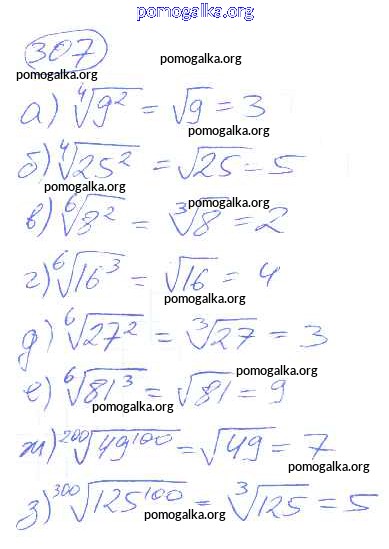 pomogalka.org
307
pomogalka.org
pomogalka.org
а) ⁴√9² = √9 = 3
pomogalka.org
б) ⁴√25² = √25 = 5
pomogalka.org
в) ⁶√8² = ³√8 = 2
pomogalka.org
г) ⁶√16³ = √16 = 4
pomogalka.org
д) ⁶√27² = ³√27 = 3
pomogalka.org
е) ⁶√81³ = √81 = 9
pomogalka.org
ж) ²⁰⁰√49¹⁰⁰ = √49 = 7
pomogalka.org
з) ³⁰⁰√125¹⁰⁰ = ³√125 = 5
pomogalka.org